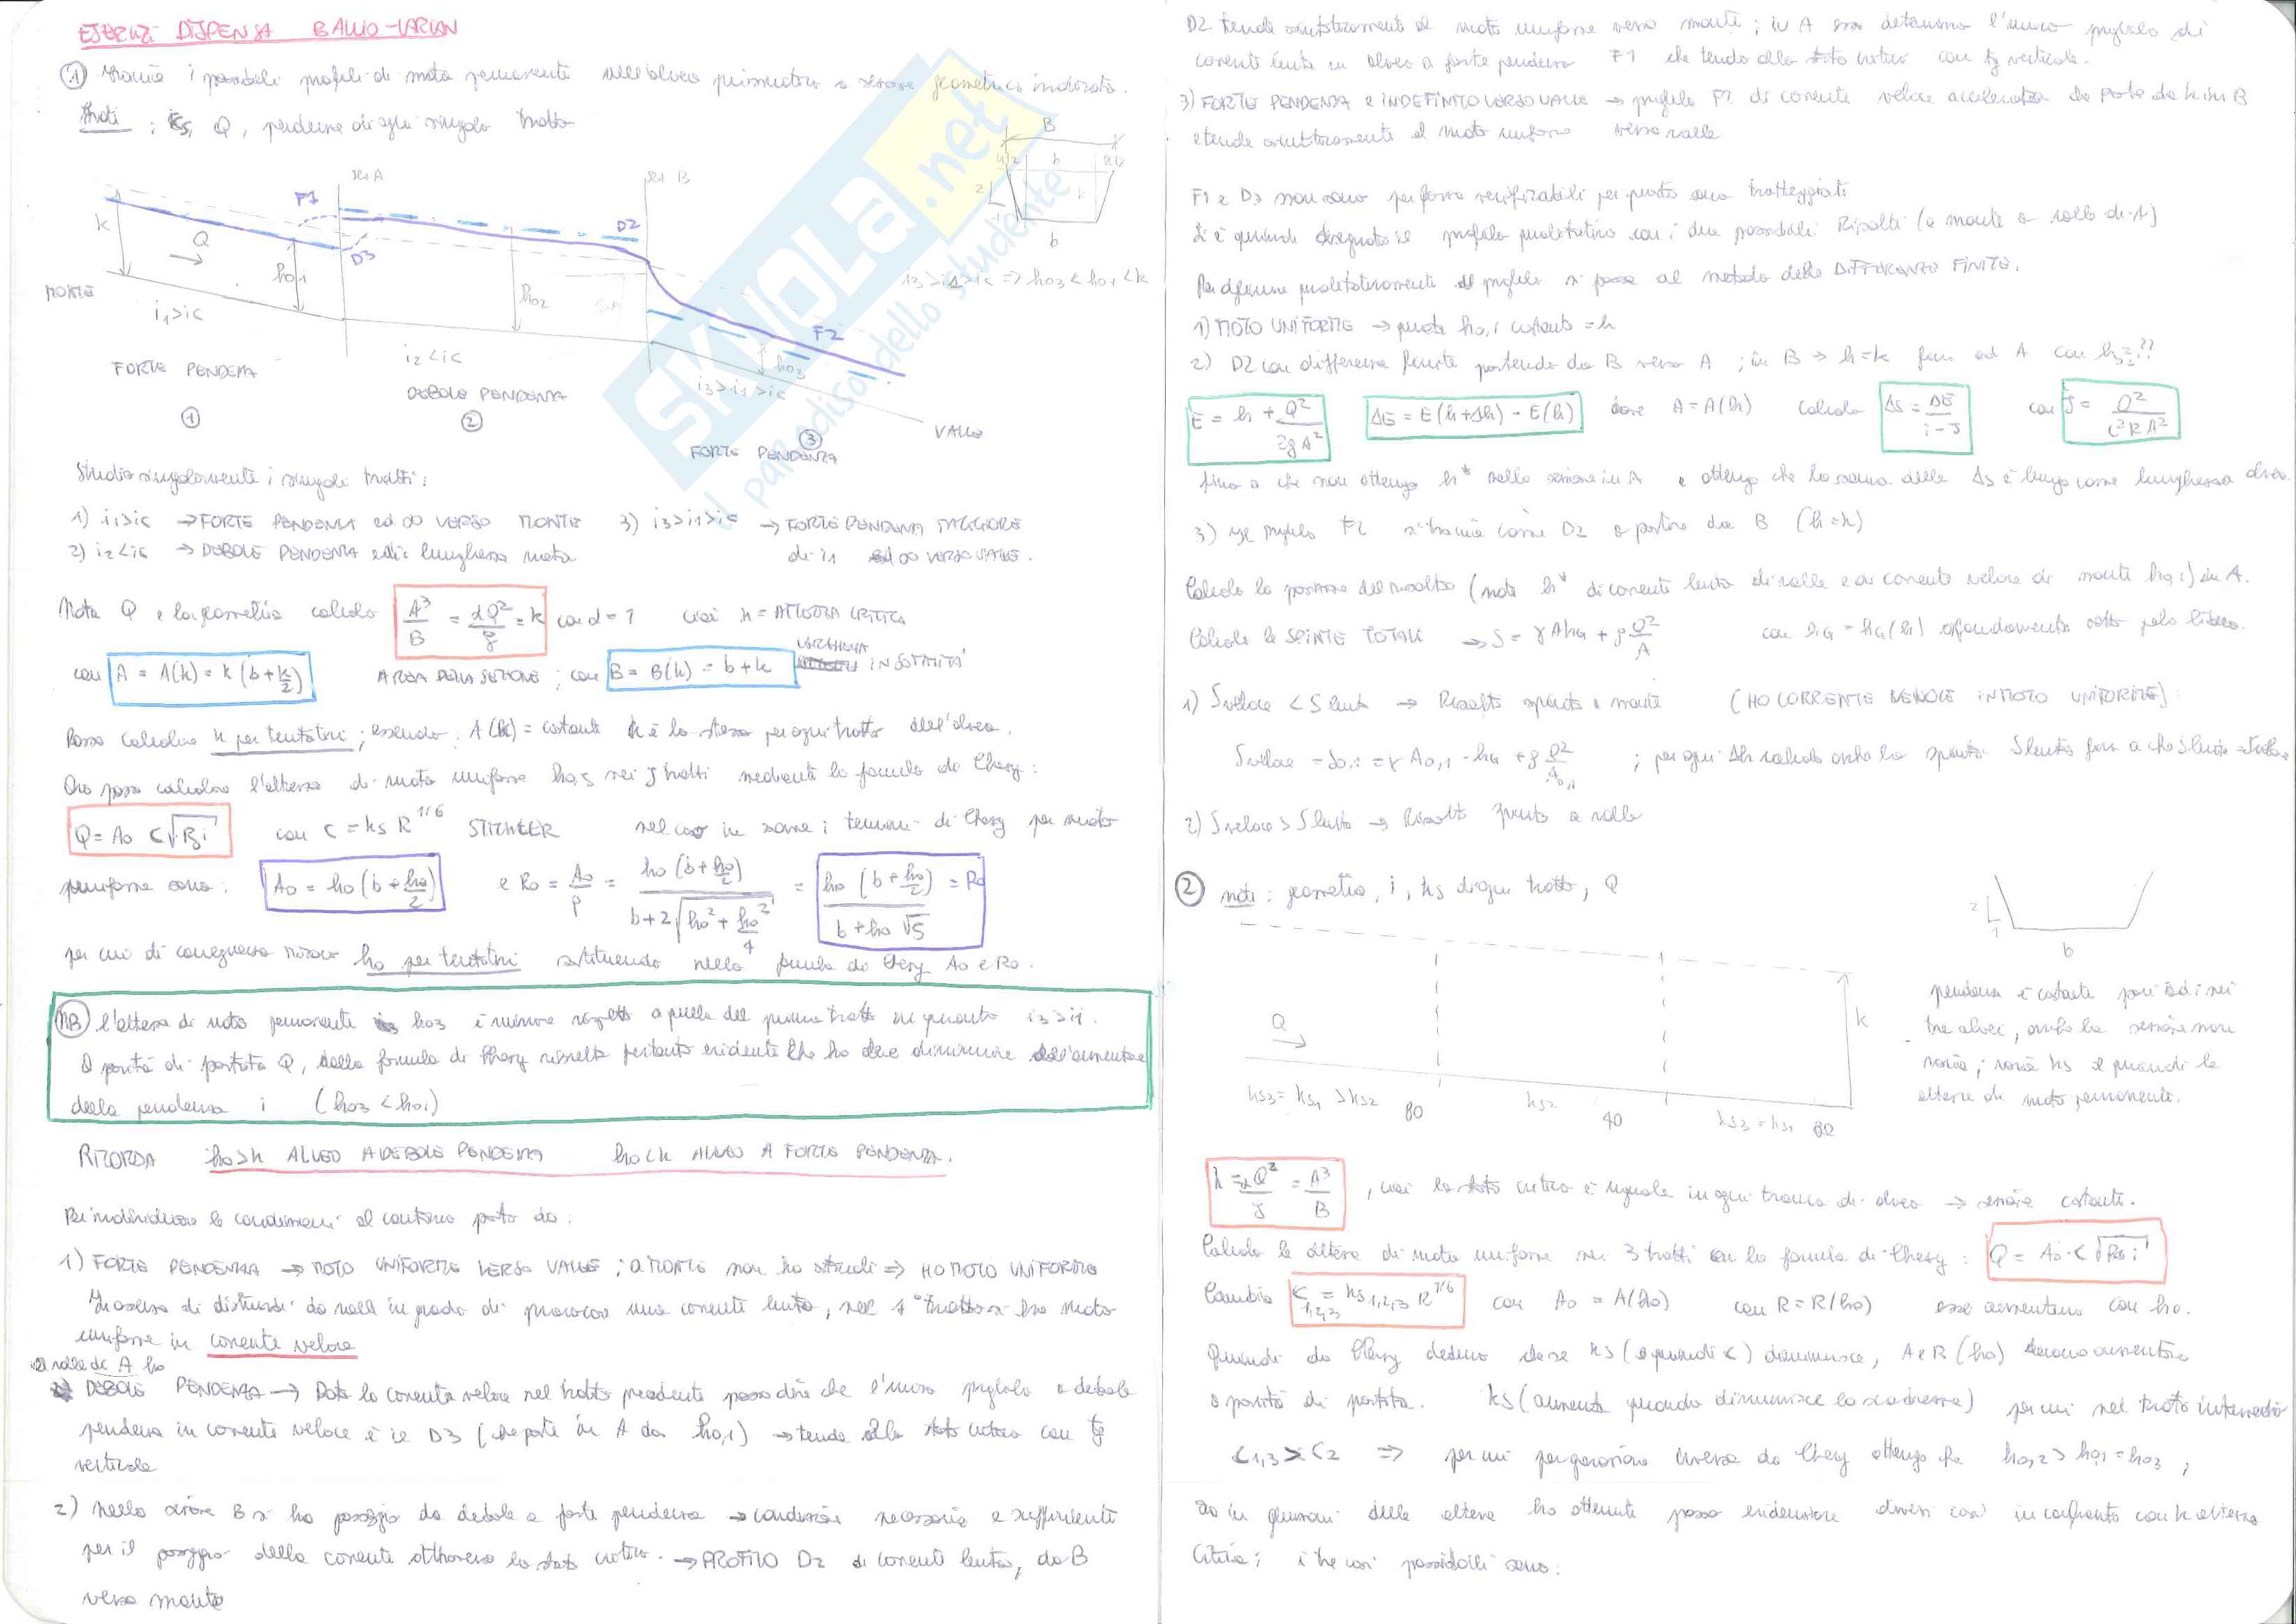 ESERCIZI DISPENSA BALLIO-LARCAN
① i possibili profili di moto permanente nell'alveo prismatico a sezione geometrica indicata.
Noti: ks, Q, pendenze di ogni singolo tratto
sez A
sez B
B
h/2 b h/2
2
1
b
F1
k
Q
D2
D3
h01
h02
h03
i3>i1>ic => h03<h01<k
MONTE
i1>ic
i2<ic
F2
i3>i1>ic
FORTE PENDENZA
DEBOLE PENDENZA
①
②
VALLE
③
FORTE PENDENZA
Studio singolarmente i singoli tratti:
1) i1>ic → FORTE PENDENZA ed ∞ VERSO MONTE 3) i3>i1>ic → FORTE PENDENZA MAGGIORE
2) i2<ic → DEBOLE PENDENZA e di lunghezza nota di i1 ed ∞ VERSO VALLE.
Nota Q e la geometria calcolo A³/B = αQ²/g = k con α = 1 k = ALTEZZA CRITICA
con A = A(k) = k (b+k/2) AREA DELLA SEZIONE; con B = B(k) = b+k LARGHEZZA IN SOMMITÀ
Posso calcolare k per tentativi; essendo A(k) = costante k è lo stesso per ogni tratto dell'alveo.
Ora posso calcolare l'altezza di moto uniforme h0,s nei 3 tratti mediante la formula di Chezy:
Q = A0 C√Ri con C = ks R^1/6 STRICKLER nel caso in esame i termini di Chezy per moto
uniforme sono: A0 = h0 (b+h0/2) e R0 = A0/P = h0 (b+h0/2) / b+2√h0²+h0²/4 = h0 (b+h0/2) / b+h0√5 = R0
per cui di conseguenza trovo h0 per tentativi sostituendo nella formula di Chezy A0 e R0.
NB l'altezza di moto permanente h03 è minore rispetto a quella del primo tratto in quanto i3>i1.
A parità di portata Q, dalla formula di Chezy risulta pertanto evidente che h0 deve diminuire all'aumentare
della pendenza i (h03 < h01)
RICORDA h0>k ALVEO A DEBOLE PENDENZA h0<k ALVEO A FORTE PENDENZA.
Per individuare le condizioni al contorno parto da:
1) FORTE PENDENZA → MOTO UNIFORME VERSO VALLE; a MONTE non ho => HO MOTO UNIFORME
In assenza di disturbi da valle in grado di provocare una corrente lenta, nel 1° tratto si ha moto
uniforme in corrente veloce
a valle di A ho
DEBOLE PENDENZA → Data la corrente veloce nel tratto precedente posso dire che l'unico profilo a debole
pendenza in corrente veloce è il D3 (che parte in A da h0,1) → tende allo stato critico con tg
verticale
2) Nella sezione B si ha passaggio da debole a forte pendenza → condizione necessaria e sufficiente
per il passaggio della corrente attraverso lo stato critico. → PROFILO D2 di corrente lenta, da B
verso monte
D2 tende asintoticamente al moto uniforme verso monte; in A esso determina l'unico profilo di
corrente lenta in alveo a forte pendenza F1 che tende allo stato critico con tg verticale.
3) FORTE PENDENZA e INDEFINITO VERSO VALLE → profilo F2 di corrente veloce accelerata che parte da k in B
e tende asintoticamente al moto uniforme verso valle
F1 e D3 non sono per forza verificabili per questo sono tratteggiati
Si è quindi disegnato il profilo qualitativo con i due possibili Risalti (a monte o valle di A)
Per definire quantitativamente il profilo si passa al metodo delle DIFFERENZE FINITE.
1) MOTO UNIFORME → quota h0,1 costante = h
2) D2 con differenze finite partendo da B verso A; in B → h=k fino ad A con h = ??
E = h + Q²/2gA² ΔE = E(h+Δh) - E(h) dove A = A(h) calcolo ΔS = ΔE/i-J con J = Q²/C²RA²
fino a che non ottengo h* nella sezione in A e ottengo che la somma delle ΔS è lunga come lunghezza alveo.
3) Il profilo F2 si traccia come D2 a partire da B (h=k)
Calcolo la posizione del risalto (nota h* di corrente lenta di valle e di corrente veloce di monte h0,1) in A.
Calcolo le SPINTE TOTALI → S = γAhG + ρQ²/A con hG = hG(h) affondamento sotto pelo libero.
1) Sveloce < Slenta → Risalto spinto a monte (HO CORRENTE VELOCE IN MOTO UNIFORME):
Sveloce = S0,1 = γA0,1·hG + ρQ²/A0,1; per ogni Δh calcolo anche la spinta Slenta fino a che Slenta = Sveloce
2) Sveloce > Slenta → Risalto spinto a valle
② note: geometria, i, ks di ogni tratto, Q
2
1
b
Q
k
ks3 = ks1 > ks2 80
ks2 40
ks3 = ks1 80
pendenza è costante pari ad i nei
tre alvei, anche la sezione non
varia; varia ks e quindi le
altezze di moto permanente.
λ = αQ²/g = A³/B, così lo stato critico è uguale in ogni tronco di alveo → sezione costante.
Calcolo le altezze di moto uniforme nei 3 tratti con la formula di Chezy: Q = A0·C√R0i
Cambia C1,2,3 = ks1,2,3 R^1/6 con A0 = A(h0) con R = R(h0) esse aumentano con h0.
Quindi da Chezy deduco che se ks (e quindi C) diminuisce, A e R (h0) devono aumentare
a parità di portata. ks (aumenta quando diminuisce la scabrezza) per cui nel tratto intermedio
C1,3 > C2 => per cui per operazione inversa da Chezy ottengo che h0,2 > h0,1 = h0,3;
delle altezze h0 ottenute posso evidenziare diversi casi in confronto con k altezza
critica; i tre casi possibili sono:
SKUOLA.net
il paradiso dello studente